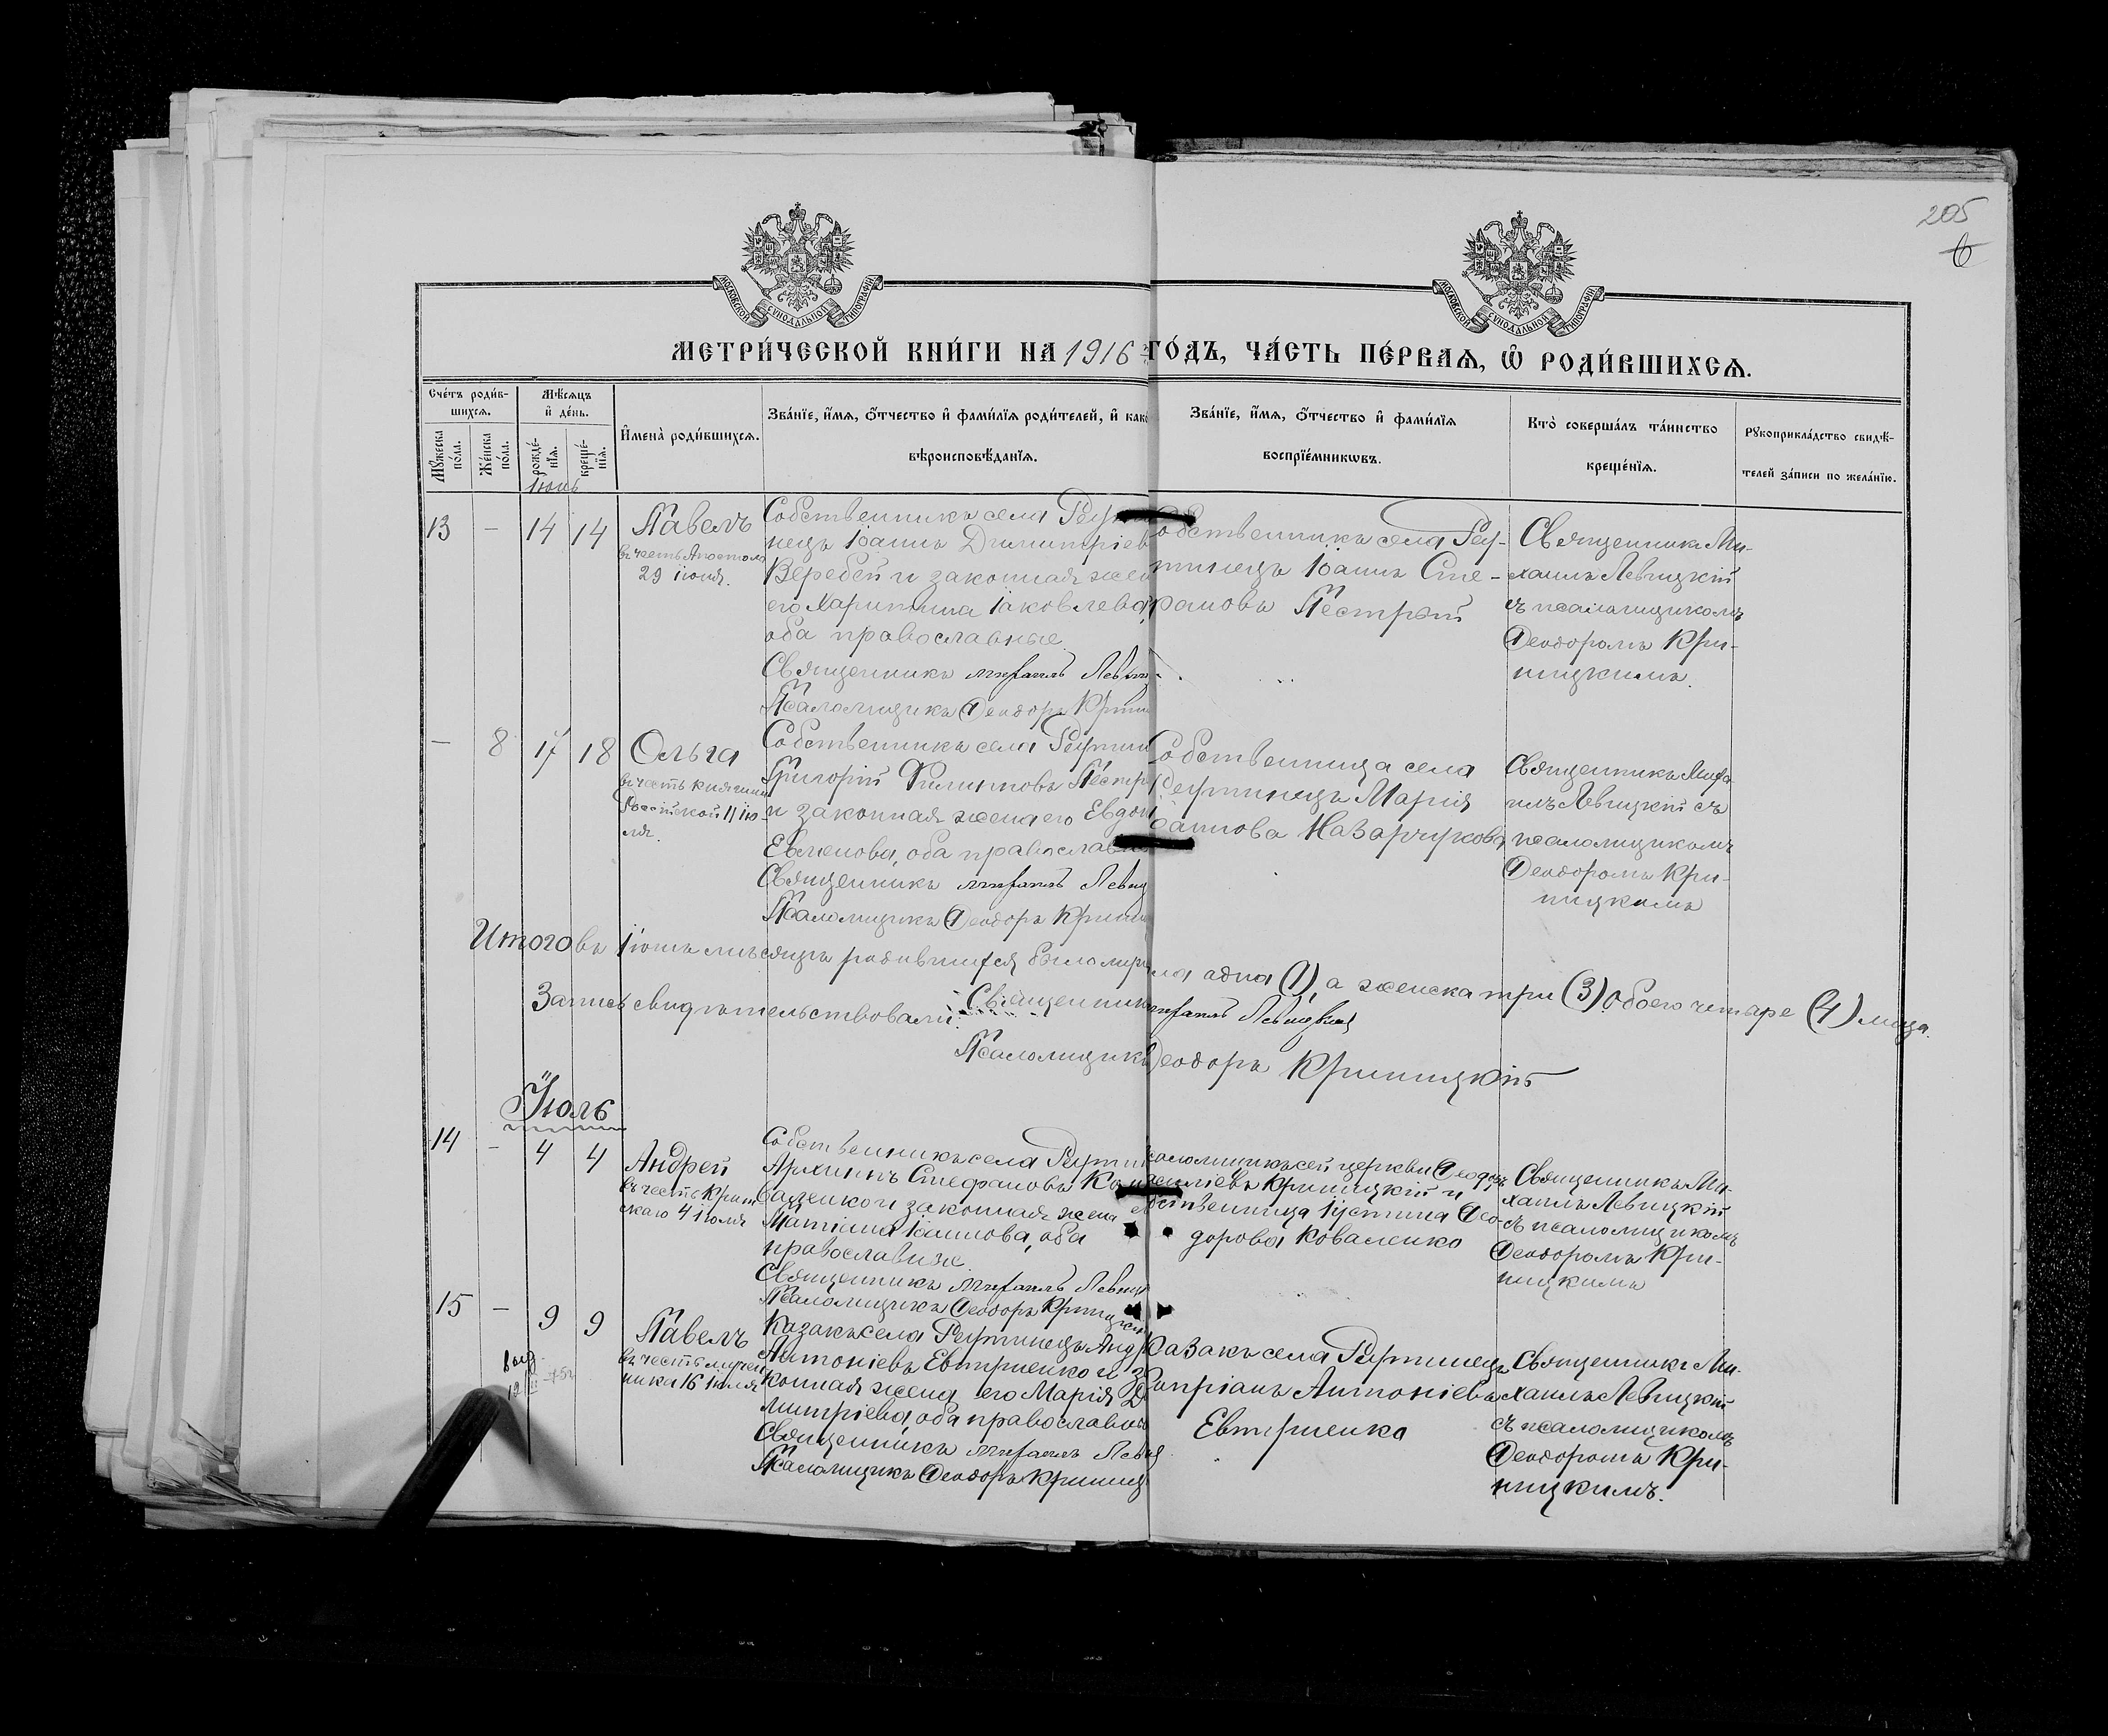 205
6
МОСКОВСКОЙ СѴНОДАЛЬНОЙ ТИПОГРАФІИ
МОСКОВСКОЙ СѴНОДАЛЬНОЙ ТИПОГРАФІИ
МЕТРИ́ЧЕСКОЙ КНИ́ГИ НА 1916 ГО́ДЪ, ЧА́СТЬ ПЕ́РВАѦ, Ѡ҆ РОДИ́ВШИХСѦ.
Сче́тъ роди́в-
шихсѧ.
Мꙋ́жеска
по́ла.
Же́нска
по́ла.
Мѣ́сѧцъ
и҆ де́нь.
рожде́-
нїѧ.
креще́-
нїѧ.
И҆мена̀ роди́вшихсѧ.
Зва́нїе, и҆́мѧ, ѻ҆́тчество и҆ фами́лїѧ роди́телей, и҆ како
вѣроисповѣ́данїѧ.
Зва́нїе, и҆́мѧ, ѻ҆́тчество и҆ фами́лїѧ
воспрїе́мникѡвъ.
Кто̀ соверша́лъ та́инство
креще́нїѧ.
Рꙋкоприкла́дство свидѣ́-
телей за́писи по жела́нїю.
Іюнь
13 - 14 14
Павелъ
въ честь Апостола
29 іюня.
Собственникъ села Реути
нецъ Іоаннъ Димитріев
Веребей и законная жен
его Харитина Іаковлева,
оба православные.
Священникъ Михаилъ Левиц
Псаломщикъ Ѳеодоръ Крини
Собственникъ села Реу-
тинецъ Іоаннъ Сте-
фановъ Пестрый
Священникъ Ми-
хаилъ Левицкій
съ псаломщикомъ
Ѳеодоромъ Кри-
ницкимъ.
- 8 17 18
Ольга
въ честь княгини
Россійской 11 ію
ля.
Собственникъ села Реутин
Григорій Филиповъ Пестр
и законная жена его Евдок
Евменова, оба православн
Священникъ Михаилъ Левиц
Псаломщикъ Ѳеодоръ Крини
Собственница села
Реутинецъ Марія
Іоаннова Назарчукова
Священникъ Миха
илъ Левицкій съ
псаломщикомъ
Ѳеодоромъ Кри-
ницкимъ
Итого въ Іюнѣ мѣсяцѣ родившихся было муж одна (1), а женска три (3) обоего четыре (4) лица.
Запись свидѣтельствовали: Священник Михаилъ Левицкій
Псаломщикъ Ѳеодоръ Криницкій
Іюль
14 - 4 4
Андрей
въ честь Крит
скаго 4 Іюля
Собственникъ села Реутин
Архиппъ Стефановъ Ко
и законная жена е
Іоаннова, оба
православные.
Священникъ Михаилъ Левиц
Псаломщикъ Ѳеодоръ Криницкі
саломщикъ сей церкви Ѳеодоръ
Криницкій и
бственница Іустина Ѳео-
дорова Коваленко
Священникъ Ми-
хаилъ Левицкій
съ псаломщикомъ
Ѳеодоромъ Кри-
ницкимъ
15 - 9 9
Павелъ
въ честь мучен
ника 16 Іюля
Казакъ села Реутинецъ Андр
Антоніевъ Евтушенко и за
конная жена его Марія Д
митріева оба православны
Священникъ Михаилъ Левиц
Псаломщикъ Ѳеодоръ Криниц
Казакъ села Реутинецъ
Кипріанъ Антоніевъ
Евтушенко
Священникъ Ми-
хаилъ Левицкій
съ псаломщикомъ
Ѳеодоромъ Кри-
ницкимъ.